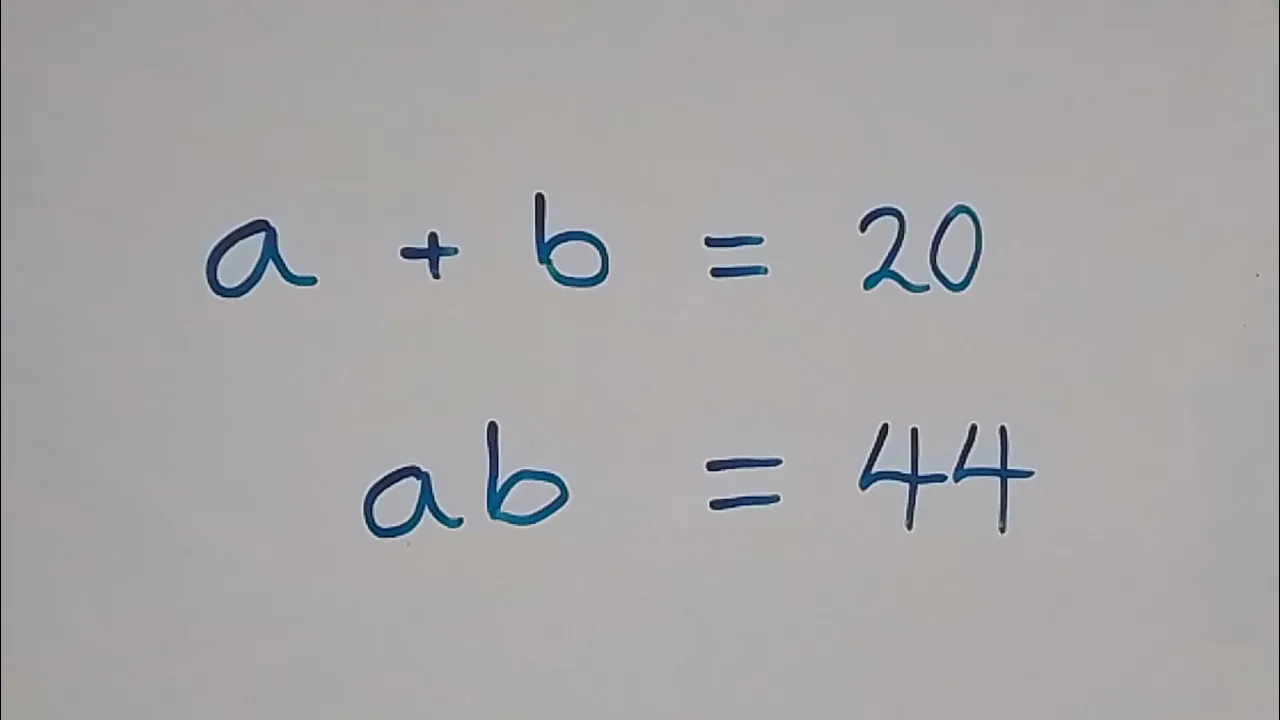 a + b = 20
ab = 44